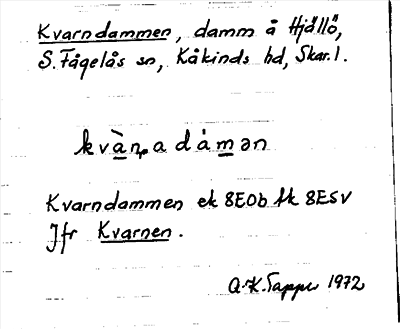 Kvarndammen, damm å Hjällö,
S. Fågelås sn, Kåkinds hd, Skar. l.
kvànₐadàmən
Kvarndammen ek 8E0b fk 8E5v
Jfr Kvarnen.
A-K. Tapper 1972